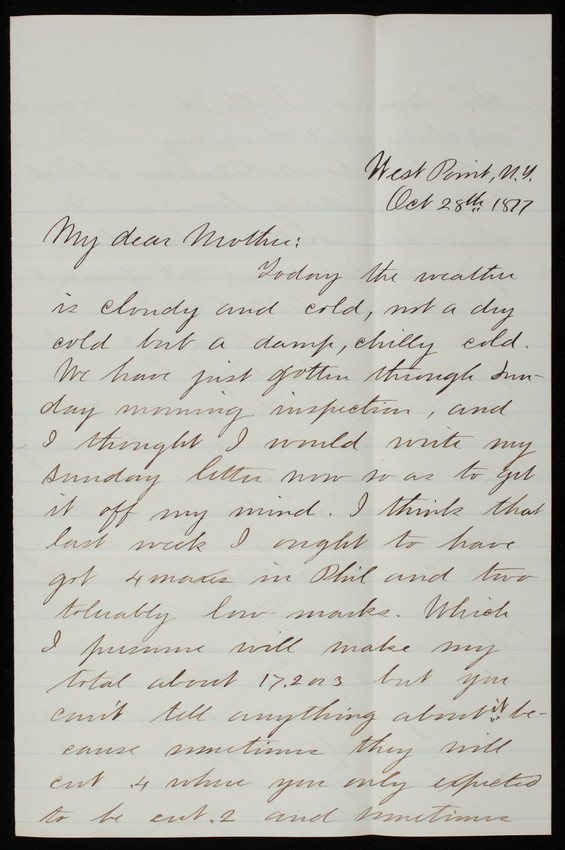 West Point, N.Y.
Oct 28th 1877
My dear Mother:
Today the weather
is cloudy and cold, not a dry
cold but a damp, chilly cold.
We have just gotten through Sun-
day morning inspection, and
I thought I would write my
Sunday letter now so as to get
it off my mind. I think that
last week I ought to have
got 4 maxes in Phil and two
toluably low marks. Which
I presume will make my
total about 17.2 or 3 but you
can't tell anything about it be-
cause sometimes they will
cut .4 where you only expected
to be cut .2 and sometimes